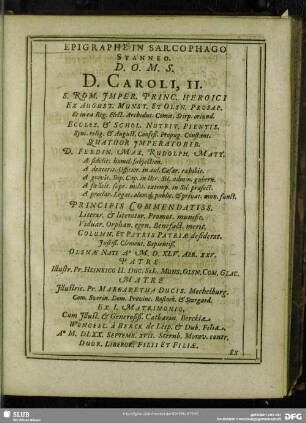 EPIGRAPHE IN SARCOPHAGO
STANNEO.
D. O. M. S.
D. CAROLI, II.
S. ROM. IMPER. PRINC. HEROICI
EX AUGUST. MUNST. ET OLSN. PROSAP.
Et inea Reg. Elect. Archiduc. Comit. Stirp. oriund.
ECCLES. & SCHOL. NUTRIT. PIENTIS.
Sym. relig. & August. Confess. Propug. Constant.
QUATUOR IMPERATORIB.
D. FERDIN. MAX. RUDOLPH. MATT.
A fidelit. humil. subjection.
A dexterit. Officior. in aul. Cæsar. exhibit.
A gravit. Sup. Cap. in utr. Sil. admin. gubern.
PRINCIPIS COMMENDATISS.
Literar. & literator. Promot. munific.
Viduar. Orphan. egen. Benefact. merit.
COLUMN. ET PATRIS PATRIÆ desiderat.
Justiss. Clement. Sapientiss.
OLSNÆ NATI Aº M. D. XLV. APR. XXV.
PATRE
Illustr. Pr. HEINRICO II. DUC. SIL. MONS. OLSN. COM. GLAC.
MATRE
Illustris. Pr. MARGARETHA DUCIS. Mechelburg.
Com. Sverin. Dom. Provinc. Rostoch. & Stargard.
EX I. MATRIMONIO,
Cum Illust. & Generosiss. Catharin. Berckia
WENCESL. à BERCK de Leip. & Dub. Filia
Aº M. D LXX. SEPTEMB. XVII. Sternb. Morav. contr.
DUOR. LIBEROR. FILII ET FILIÆ.
EX
SLUB